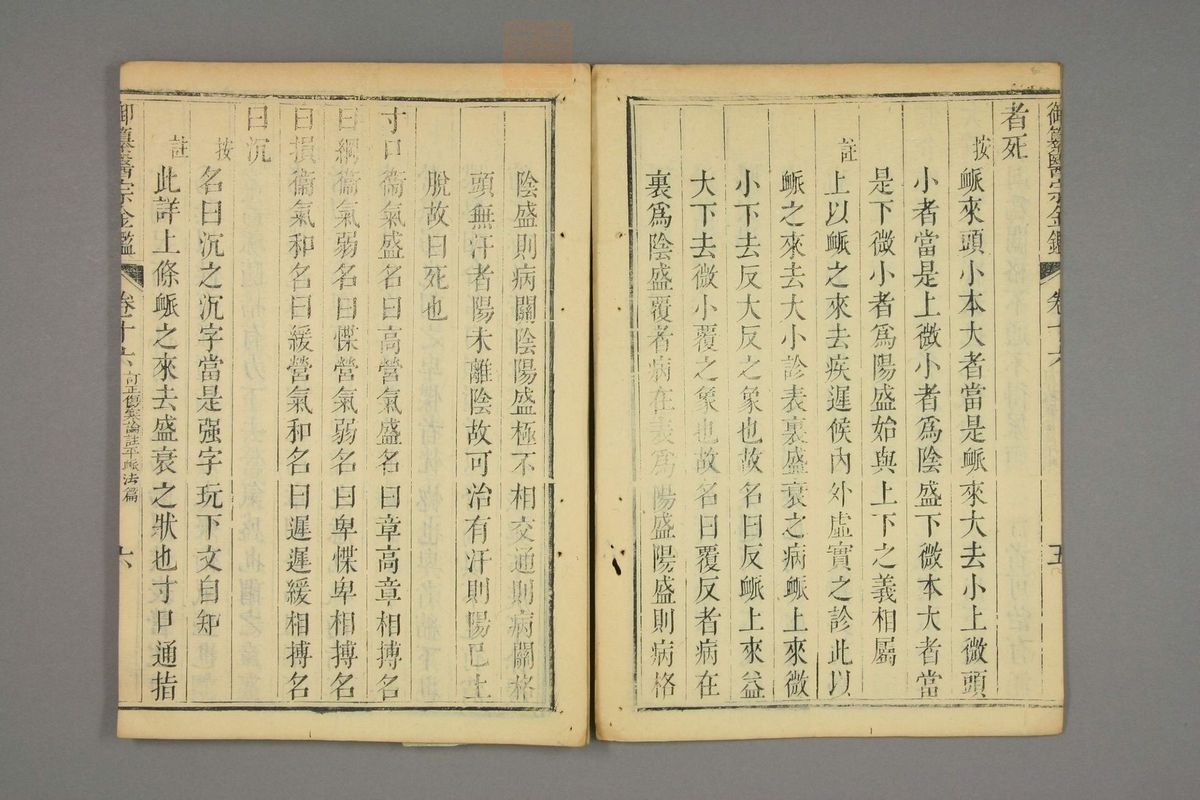 御纂醫宗金鑑 卷十六 五
者死
按 䘑來頭小本大者當是䘑來大去小上微頭
小者當是上微小者爲陰盛下微本大者當
是下微小者爲陽盛始與上下之義相屬
註 上以䘑之來去疾遲候內外虛實之診此以
䘑之來去大小診表裏盛衰之病䘑上來微
小下去反大反之象也故名曰反䘑上來益
大下去微小覆之象也故名曰覆反者病在
裏爲陰盛覆者病在表爲陽盛陽盛則病格
陰盛則病關陰陽盛極不相交通則病關格
頭無汗者陽未離陰故可治有汗則陽已上
脫故曰死也
寸口衞氣盛名曰高營氣盛名曰章高章相搏名
曰綱衞氣弱名曰惵營氣弱名曰卑惵卑相搏名
曰損衞氣和名曰緩營氣和名曰遲遲緩相搏名
曰沉
按 名曰沉之沉字當是强字玩下文自知
註 此詳上條䘑之來去盛衰之狀也寸口通指
御纂醫宗金鑑 卷十六 訂正傷寒論註平䘑法篇 六